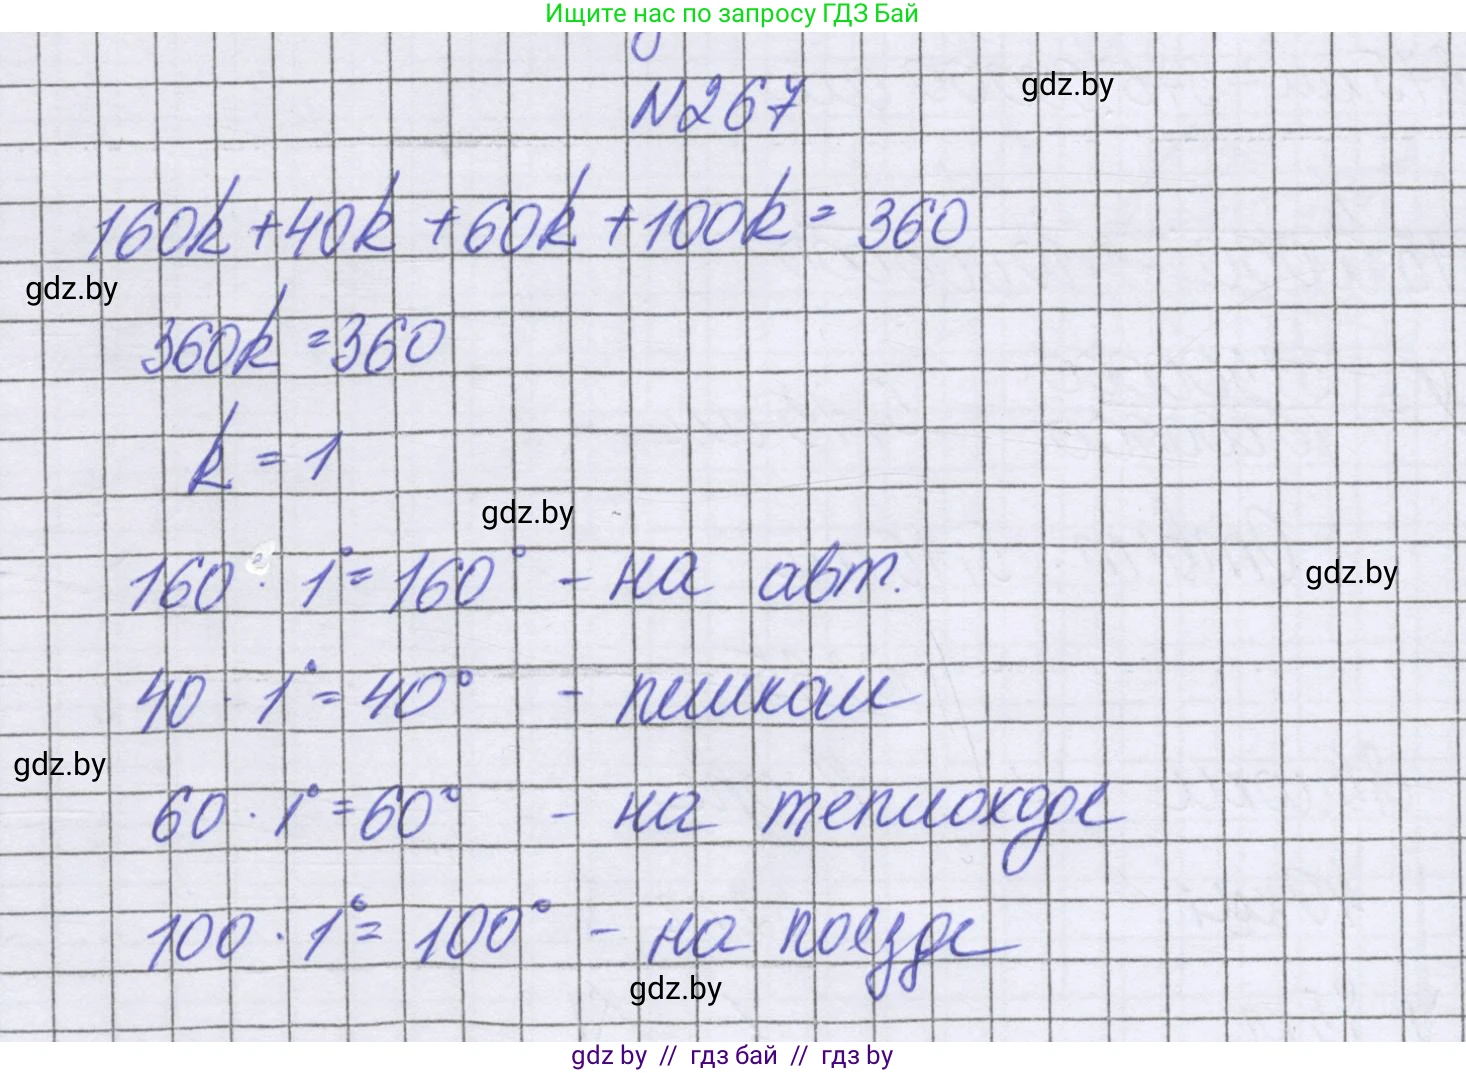 Ищите нас по запросу ГДЗ Бай
№267
gdz.by
160k + 40k + 60k + 100k = 360
gdz.by
360k = 360
k = 1
gdz.by
160 · 1° = 160° - на авт.
gdz.by
40 · 1° = 40° - пешком
gdz.by
60 · 1° = 60° - на теплоходе
100 · 1° = 100° - на поезде
gdz.by
gdz by // гдз бай // гдз by